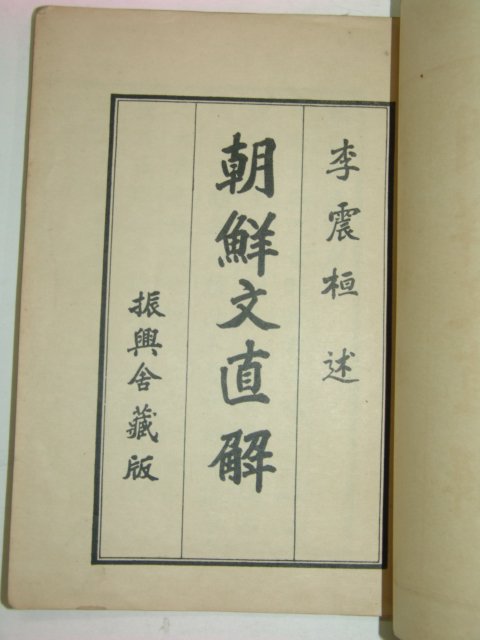 李震桓 述
朝鮮文直解
振興舍藏版